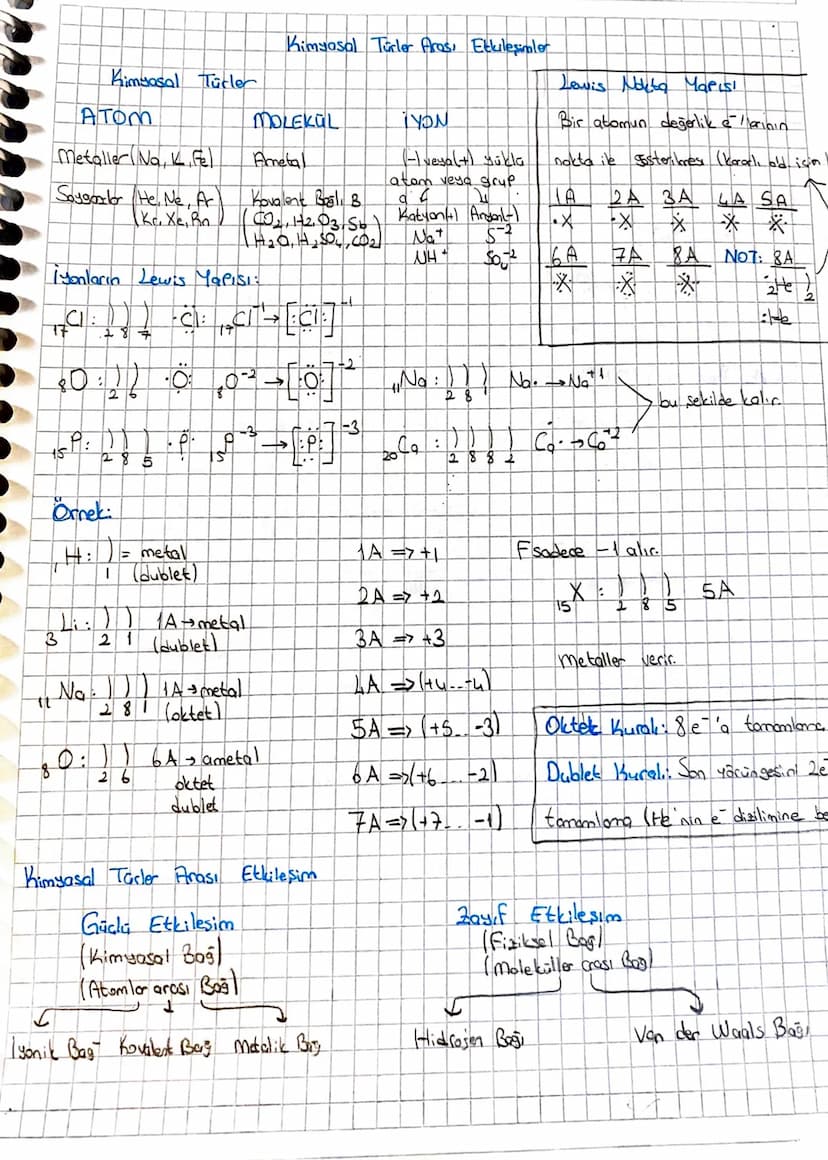 Kimyasal Türler Arası Etkileşimler
Kimyasal Türler
ATOM
Metaller (Na, K, Fe)
Soygazlar (He, Ne, Ar
Kr, Xe, Rn)
MOLEKÜL
Ametal
Kovalent Bağlı B
(CO₂, H₂, O₃, S₆
H₂O, H₂SO₄, CO₂)
İYON
(-) veya (+) yüklü
atom veya grup
Katyon(+) Anyon(-)
Na⁺ S⁻²
NH⁺ SO₄⁻²
Lewis Nokta Yapısı
Bir atomun değerlik e⁻'larının
nokta ile gösterilmesi (kararlı old. için)
1A 2A 3A 4A 5A
·X ·X· X X X
6A 7A 8A NOT: 8A
X X X ₂He )2
:He
İyonların Lewis Yapısı:
₁₇Cl: ) ) ) 2 8 7 ·Cl: ₁₇Cl⁻¹ → [:Cl:]⁻¹
₈O: ) ) 2 6 ·O: ₈O⁻² → [:O:]⁻²
₁₁Na: ) ) ) 2 8 1 Na· → Na⁺¹
bu şekilde kalır.
₁₅P: ) ) ) 2 8 5 ·P· ₁₅P⁻³ → [:P:]⁻³
₂₀Ca: ) ) ) ) 2 8 8 2 Ca· → Ca⁺²
Örnek:
₁H: ) 1 = metal
(dublet)
₃Li: ) ) 2 1 1A → metal
(dublet)
₁₁Na: ) ) ) 2 8 1 1A → metal
(oktet)
₈O: ) ) 2 6 6A → ametal
oktet
dublet
1A => +1
2A => +2
3A => +3
4A => (+4...-4)
5A => (+5.. -3)
6A => (+6... -2)
7A => (+7.. -1)
F sadece -1 alır.
₁₅X: ) ) ) 2 8 5 5A
Metaller verir.
Oktek Kuralı: 8 e⁻'a tamamlama
Dublek Kuralı: Son yörüngesini 2e⁻
tamamlama (He'nin e⁻ dizilimine be
Kimyasal Türler Arası Etkileşim
Güçlü Etkileşim
(Kimyasal Bağ)
(Atomlar arası Bağ)
İyonik Bağ Kovalent Bağ Metalik Bağ
Zayıf Etkileşim
(Fiziksel Bağ)
(Moleküller arası Bağ)
Hidrojen Bağı
Van der Waals Bağı